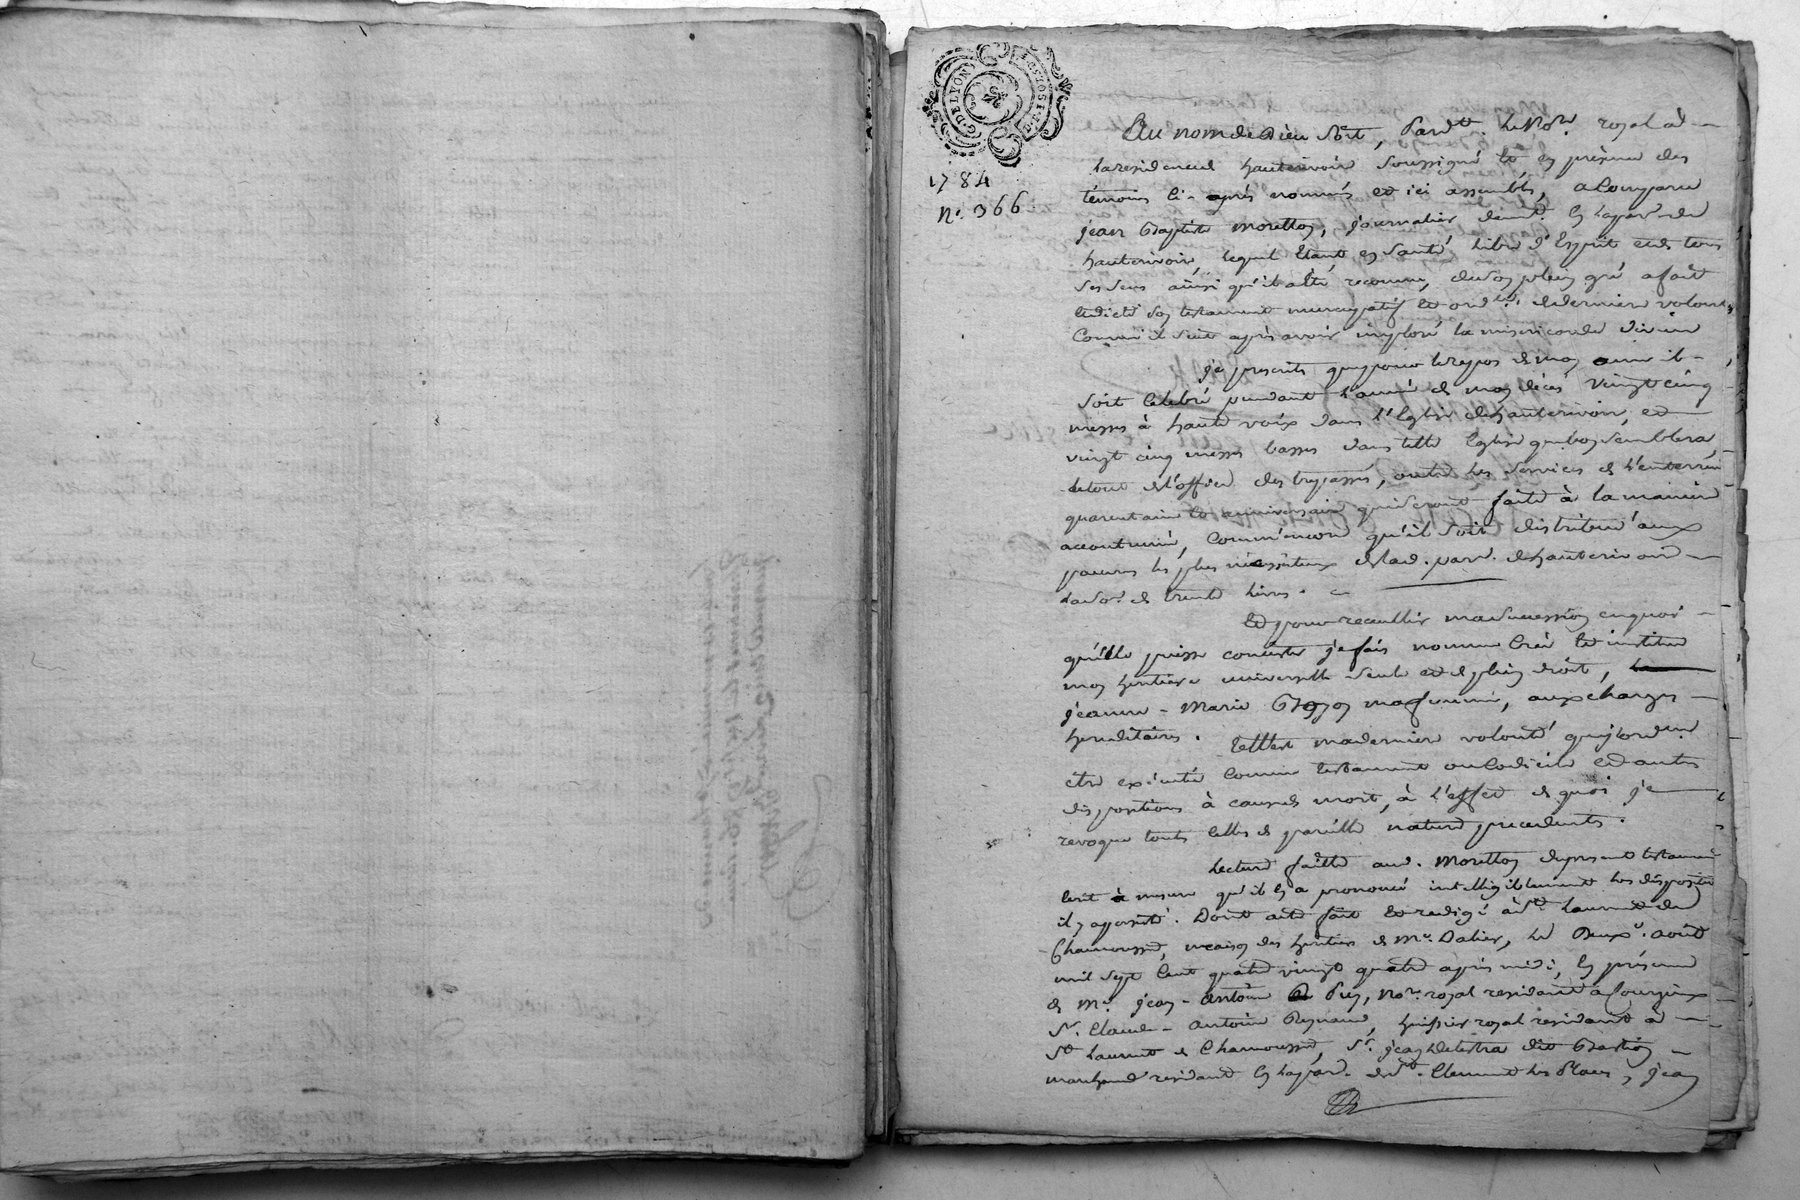 G. DE LYON
1784
N.° 366
Au nom de Dieu soit, pard.t le No.re royal à
la residence d hauterivoire soussigné et en présence des
témoins ci-après nommés et ici assemblés, a comparu
jean Baptiste Morellon, journalier demt. en la par.se de
hauterivoire, lequel étant en santé, libre d'Esprit et de tous
ses sens ainsi qu'il a été reconnu, de son plein gré a fait
et dicté son testament nuncupatif et ord.on de derniere volonté
Comme il suit après avoir imploré la misericorde divine
je prescrits que pour le repos de mon ame il
soit celebré pendant l'année de mon décés vingt cinq
messes à haute voix dans l'Eglise de hauterivoire, et
vingt cinq messes basses dans telle Eglise que bon semblera,
le tout de l'office des trepassés, outre les services de l'enterrem
quarantaine et anniversaire qui seront faits à la maniere
accoutumée, comme encore qu'il soit distribué aux
pauvres les plus nécéssiteux de lad. par. d hauterivoire
la so.e de trente livres.
Et pour recueillir ma succession en quoi
qu'elle puisse consister je fais nomme crée et institue
mon heritiere universelle seule et de plein droit,
jeanne-Marie ma femme, aux charges
hereditaires. telle est ma derniere volonté que j'ordonne
étre exécuté comme testament ou codicile et autres
dispositions à cause de mort, à l'effet de quoi je
revoque toutes celles de pareille nature precedentes.
Lecture faitte aud. Morellon du present testament
écrit à mesure qu'il en a prononcé intelligiblement les dispositions
il y a persisté. Dont acte fait et redigé à St. Laurent de
Chamousset, maison des heritiers de Me. Dalier, le deuxe. août
mil sept cent quatre vingt quatre après midi, en présence
de Me. jean-Antoine Puy, nore. royal residant a
Sr. Claude-Antoine Reynaud, huissier royal residant à
St. Laurent de Chamousset, Sr. jean Delestra dit Bastion
marchand residant en la par. de St. Clement les Places, jean